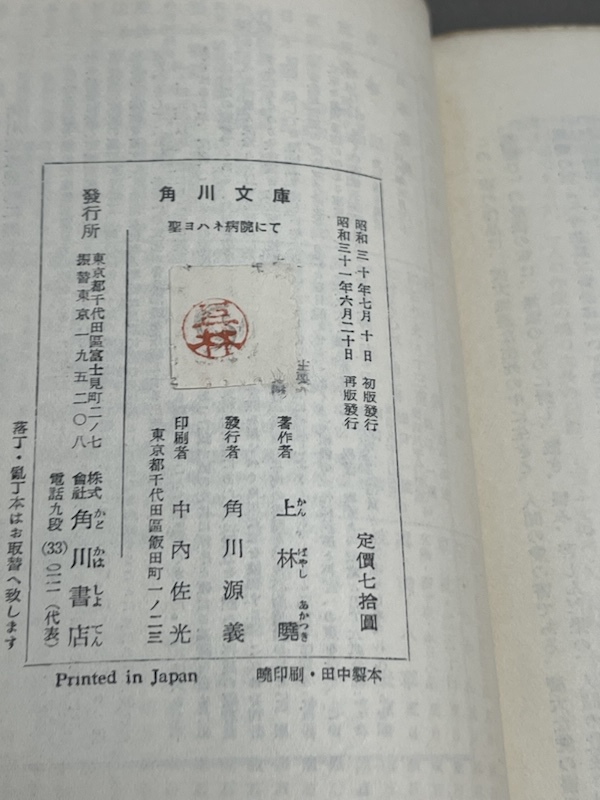 角川文庫
聖ヨハネ病院にて
昭和三十年七月十日　初版發行
昭和三十一年六月二十日　再版發行
定價七拾圓
上林
著作者　上林曉
かんばやしあかつき
發行者　角川源義
印刷者　中內佐光
東京都千代田區飯田町一ノ二三
發行所
東京都千代田區富士見町二ノ七
振替東京一九五二〇八
株式會社角川書店
かどかはしよてん
電話九段(33)〇一二一(代表)
落丁・亂丁本はお取替へ致します
Printed in Japan
曉印刷・田中製本